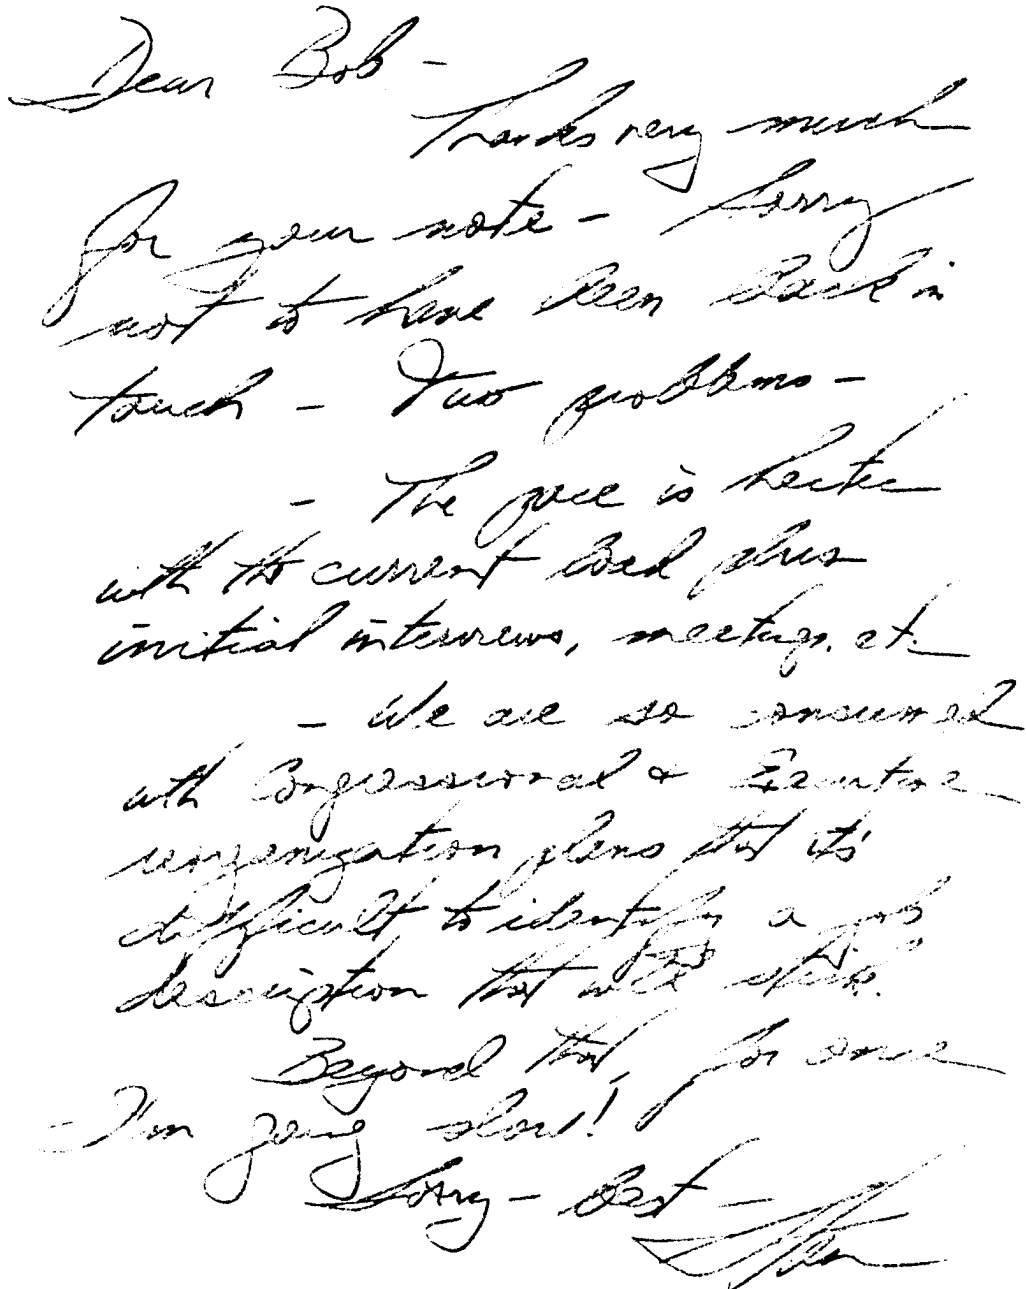 Dear Bob -
Thanks very much
for your note - Sorry
not to have been back in
touch - Two problems -
- The pace is hectic
with the current load plus
initial interviews, meetings, etc
- We are so consumed
with Congressional & Executive
reorganization plans that it's
difficult to identify a job
description that will stick.
Beyond that, for once
I'm going slow!
Sorry - Best -
Stan